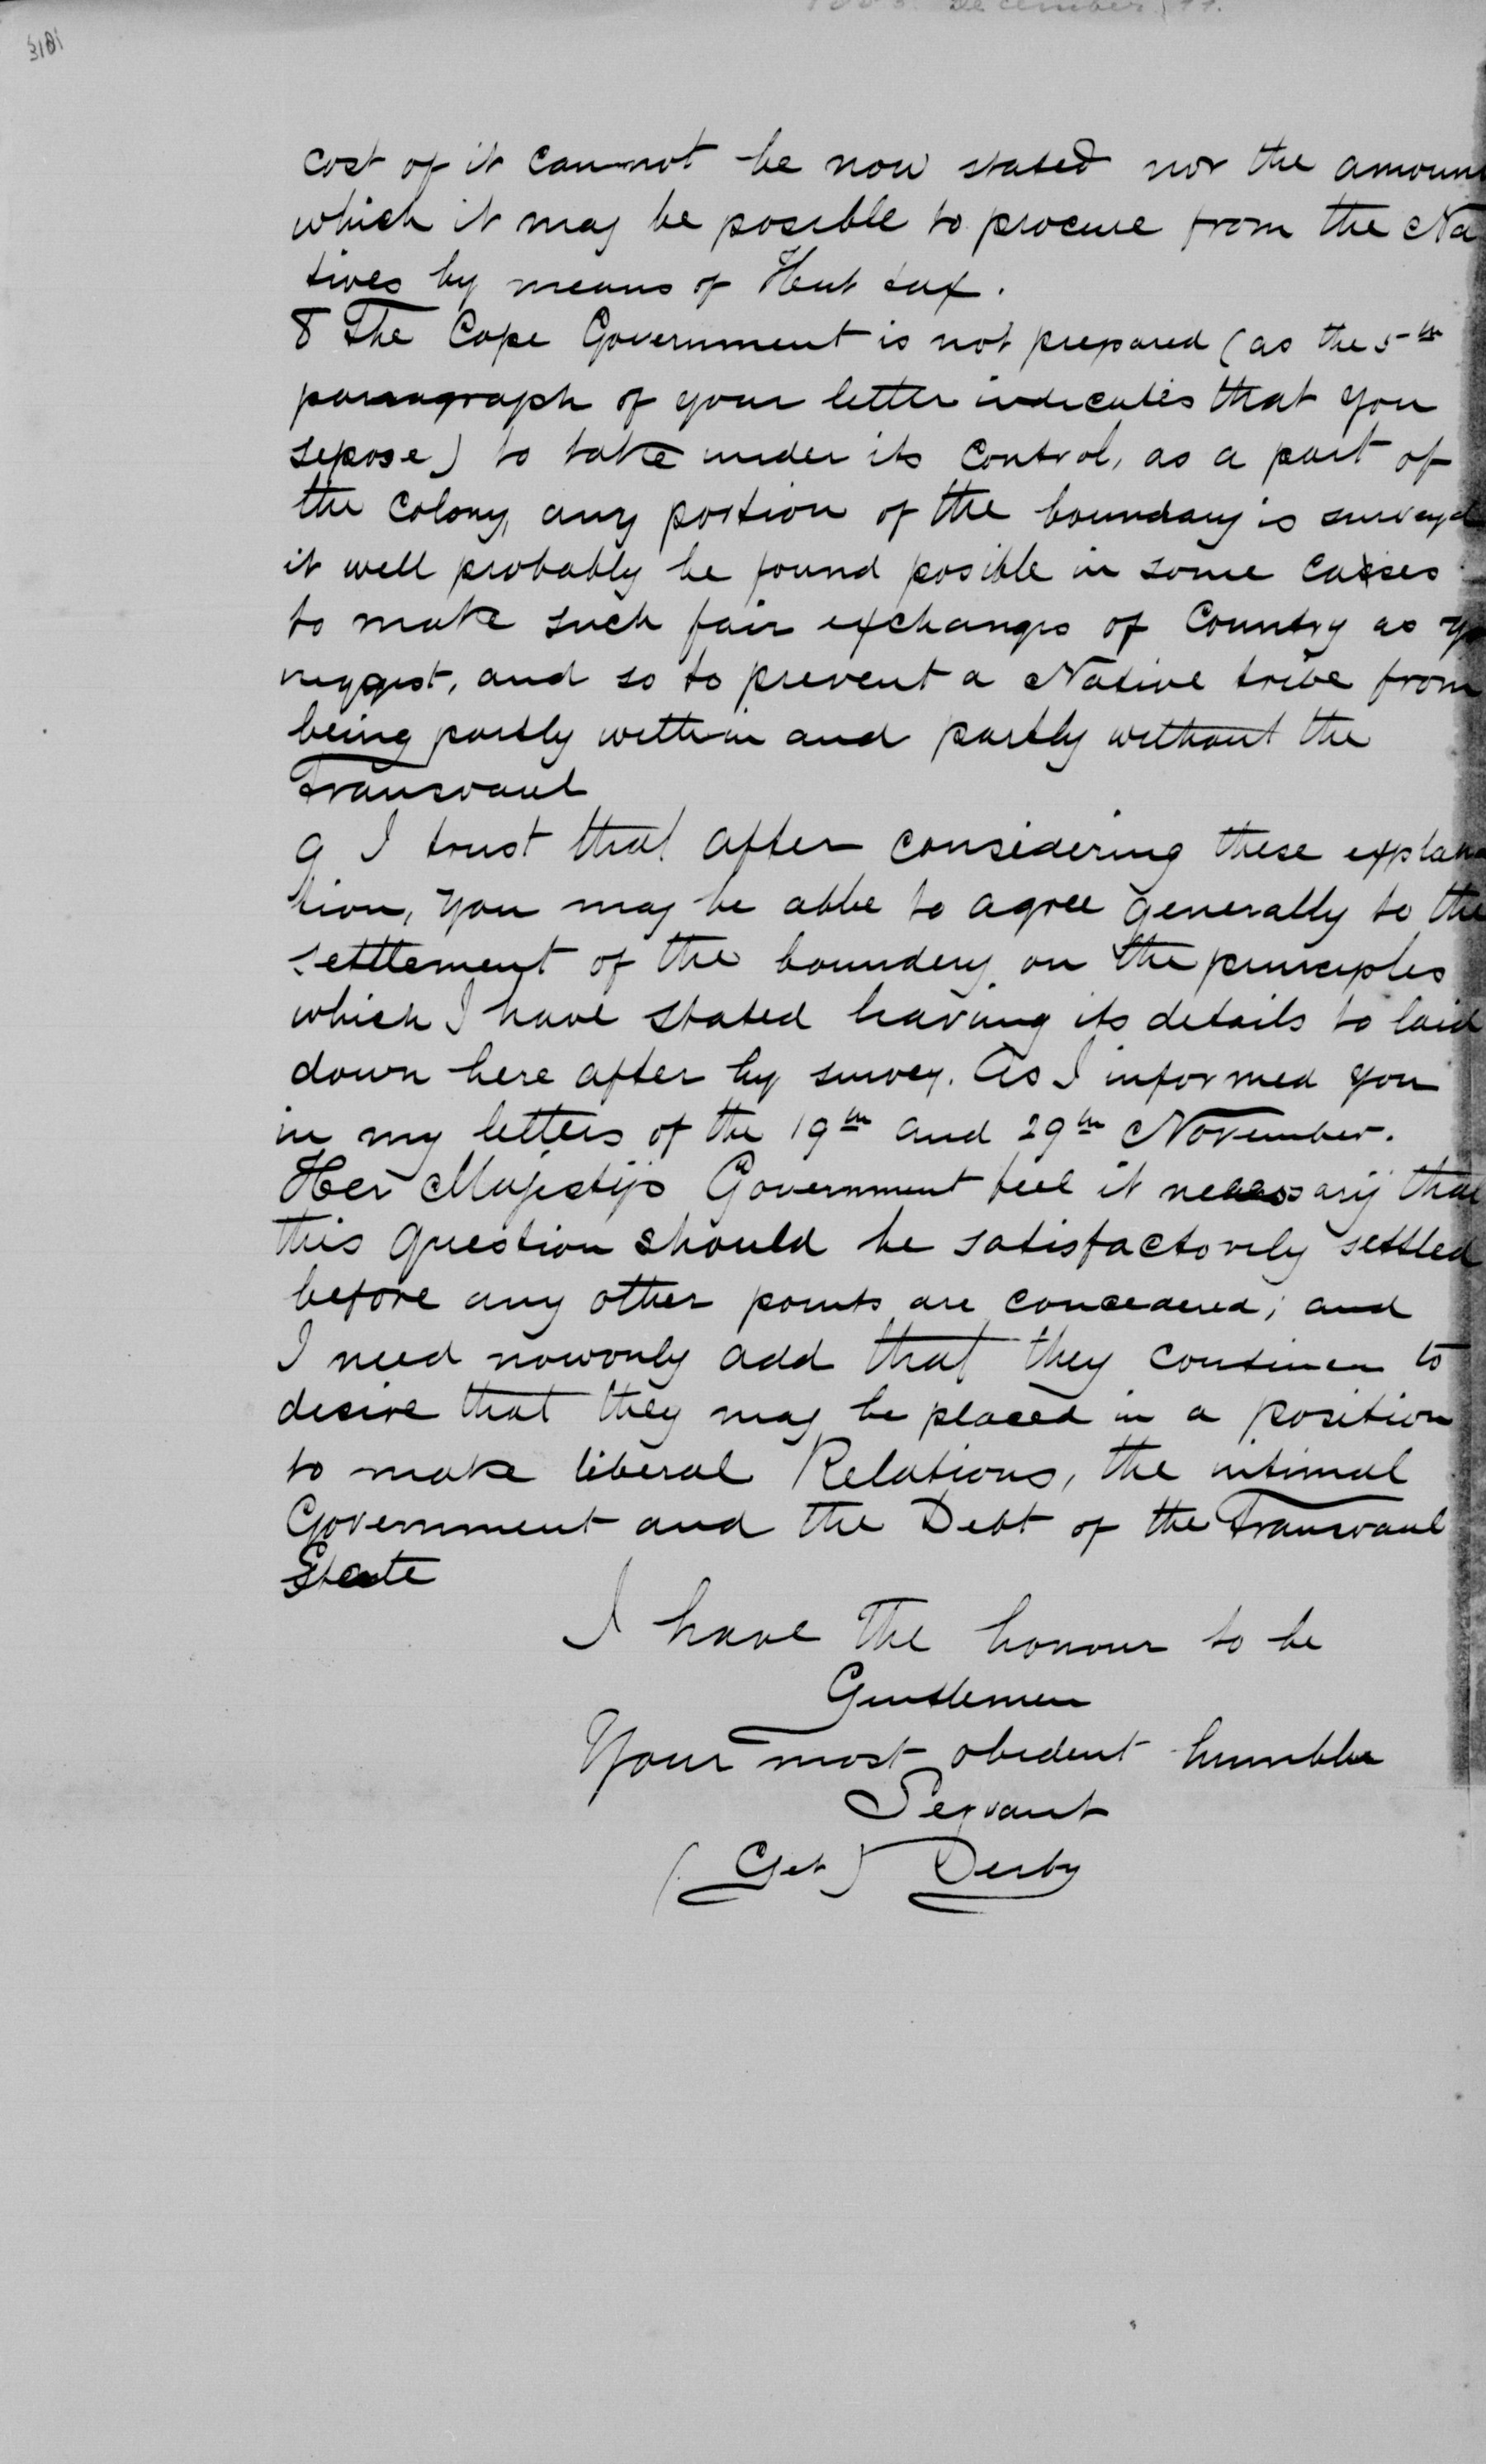 cost of it cannot be now stated nor the amoun
which it may be possble to procure from the Na
tives by means of Hut tax.
8 The Cape Government is not prepared (as the 5th
paragraph of your letter indicates that you
sepose) to take under its control, as a part of
the Colony, any portion of the boundary is surveyd
it well probably be found posible in some casses
to make such fair exchanges of Country as yo
suggest, and so to prevent a Native tribe from
being partly within and partly without the
Transvaal
9 I trust that after considering these explana
tion, you may be abbe to agree generally to the
settlement of the boundery on the principles
which I have stated leaving its details to laid
down here after by survey. As I informed you
in my letters of the 19th and 29th November.
Her Majestijs Government feel it necessarij that
this question should be satisfactorely settled
before any other points are concedered; and
I need nowonly add that they continen to
desire that they may be placed in a position
to make liberal Relations, the intimal
Government and the Debt of the Transvaal
State
I have the honour to be
Gentlemen
Your most obedent humble
Servant
(Get) Derby